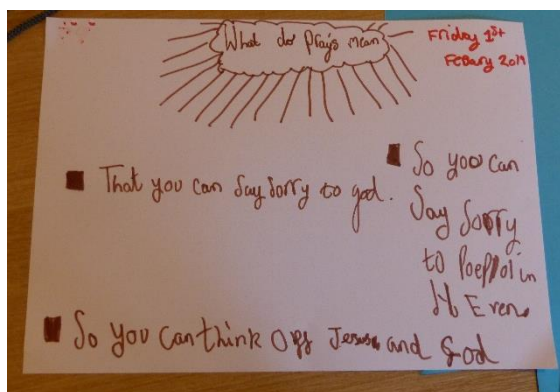 What do prays mean
Friday 1st
Febary 2019
That you can say sorry to god.
So you can
Say Sorry
to Poeplol in
HEven.
So you can think Off Jesus and God